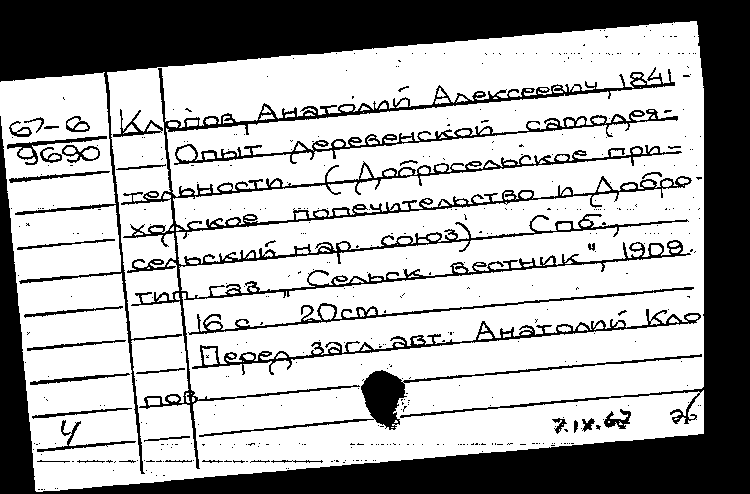 67-8
9690
Клопов, Анатолий Алексеевич, 1841-
Опыт деревенской самодея-
тельности. (Добросельское при-
ходское попечительство и Добро-
сельский нар. союз). Спб.,
тип. газ. „Сельск. вестник", 1909.
16 с. 20 cm.
Перед загл. авт.: Анатолий Кло
пов.
Ч
7.IX.67